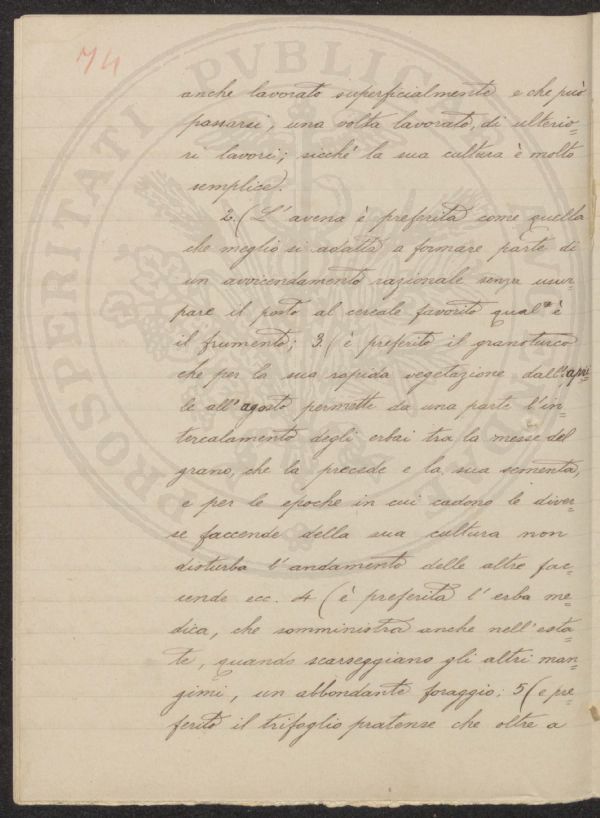 74
PROSPERITATI PVBLICAE AVGENDAE
anche lavorato superficialmente e che può
passarsi, una volta lavorato, di ulterio=
ri lavori; sicchè la sua cultura è molto
semplice.
2.( L'avena è preferita come quella
che meglio si adatta a formare parte di
un avvicendamento razionale senza usur=
pare il posto al cereale favorito qual'è
il frumento; 3.( è preferito il granoturco
che per la sua rapida vegetazione dall'apri=
le all'agosto permette da una parte l'in=
tercalamento degli erbai tra la messe del
grano, che la precede e la sua sementa,
e per le epoche in cui cadono le diver=
se faccende della sua cultura non
disturba l'andamento delle altre fac=
cende ecc. 4 ( è preferita l'erba me=
dica, che somministra anche nell'esta=
te, quando scarseggiano gli altri man=
gimi, un abbondante foraggio; 5 ( e pre=
ferito il trifoglio pratense che oltre a